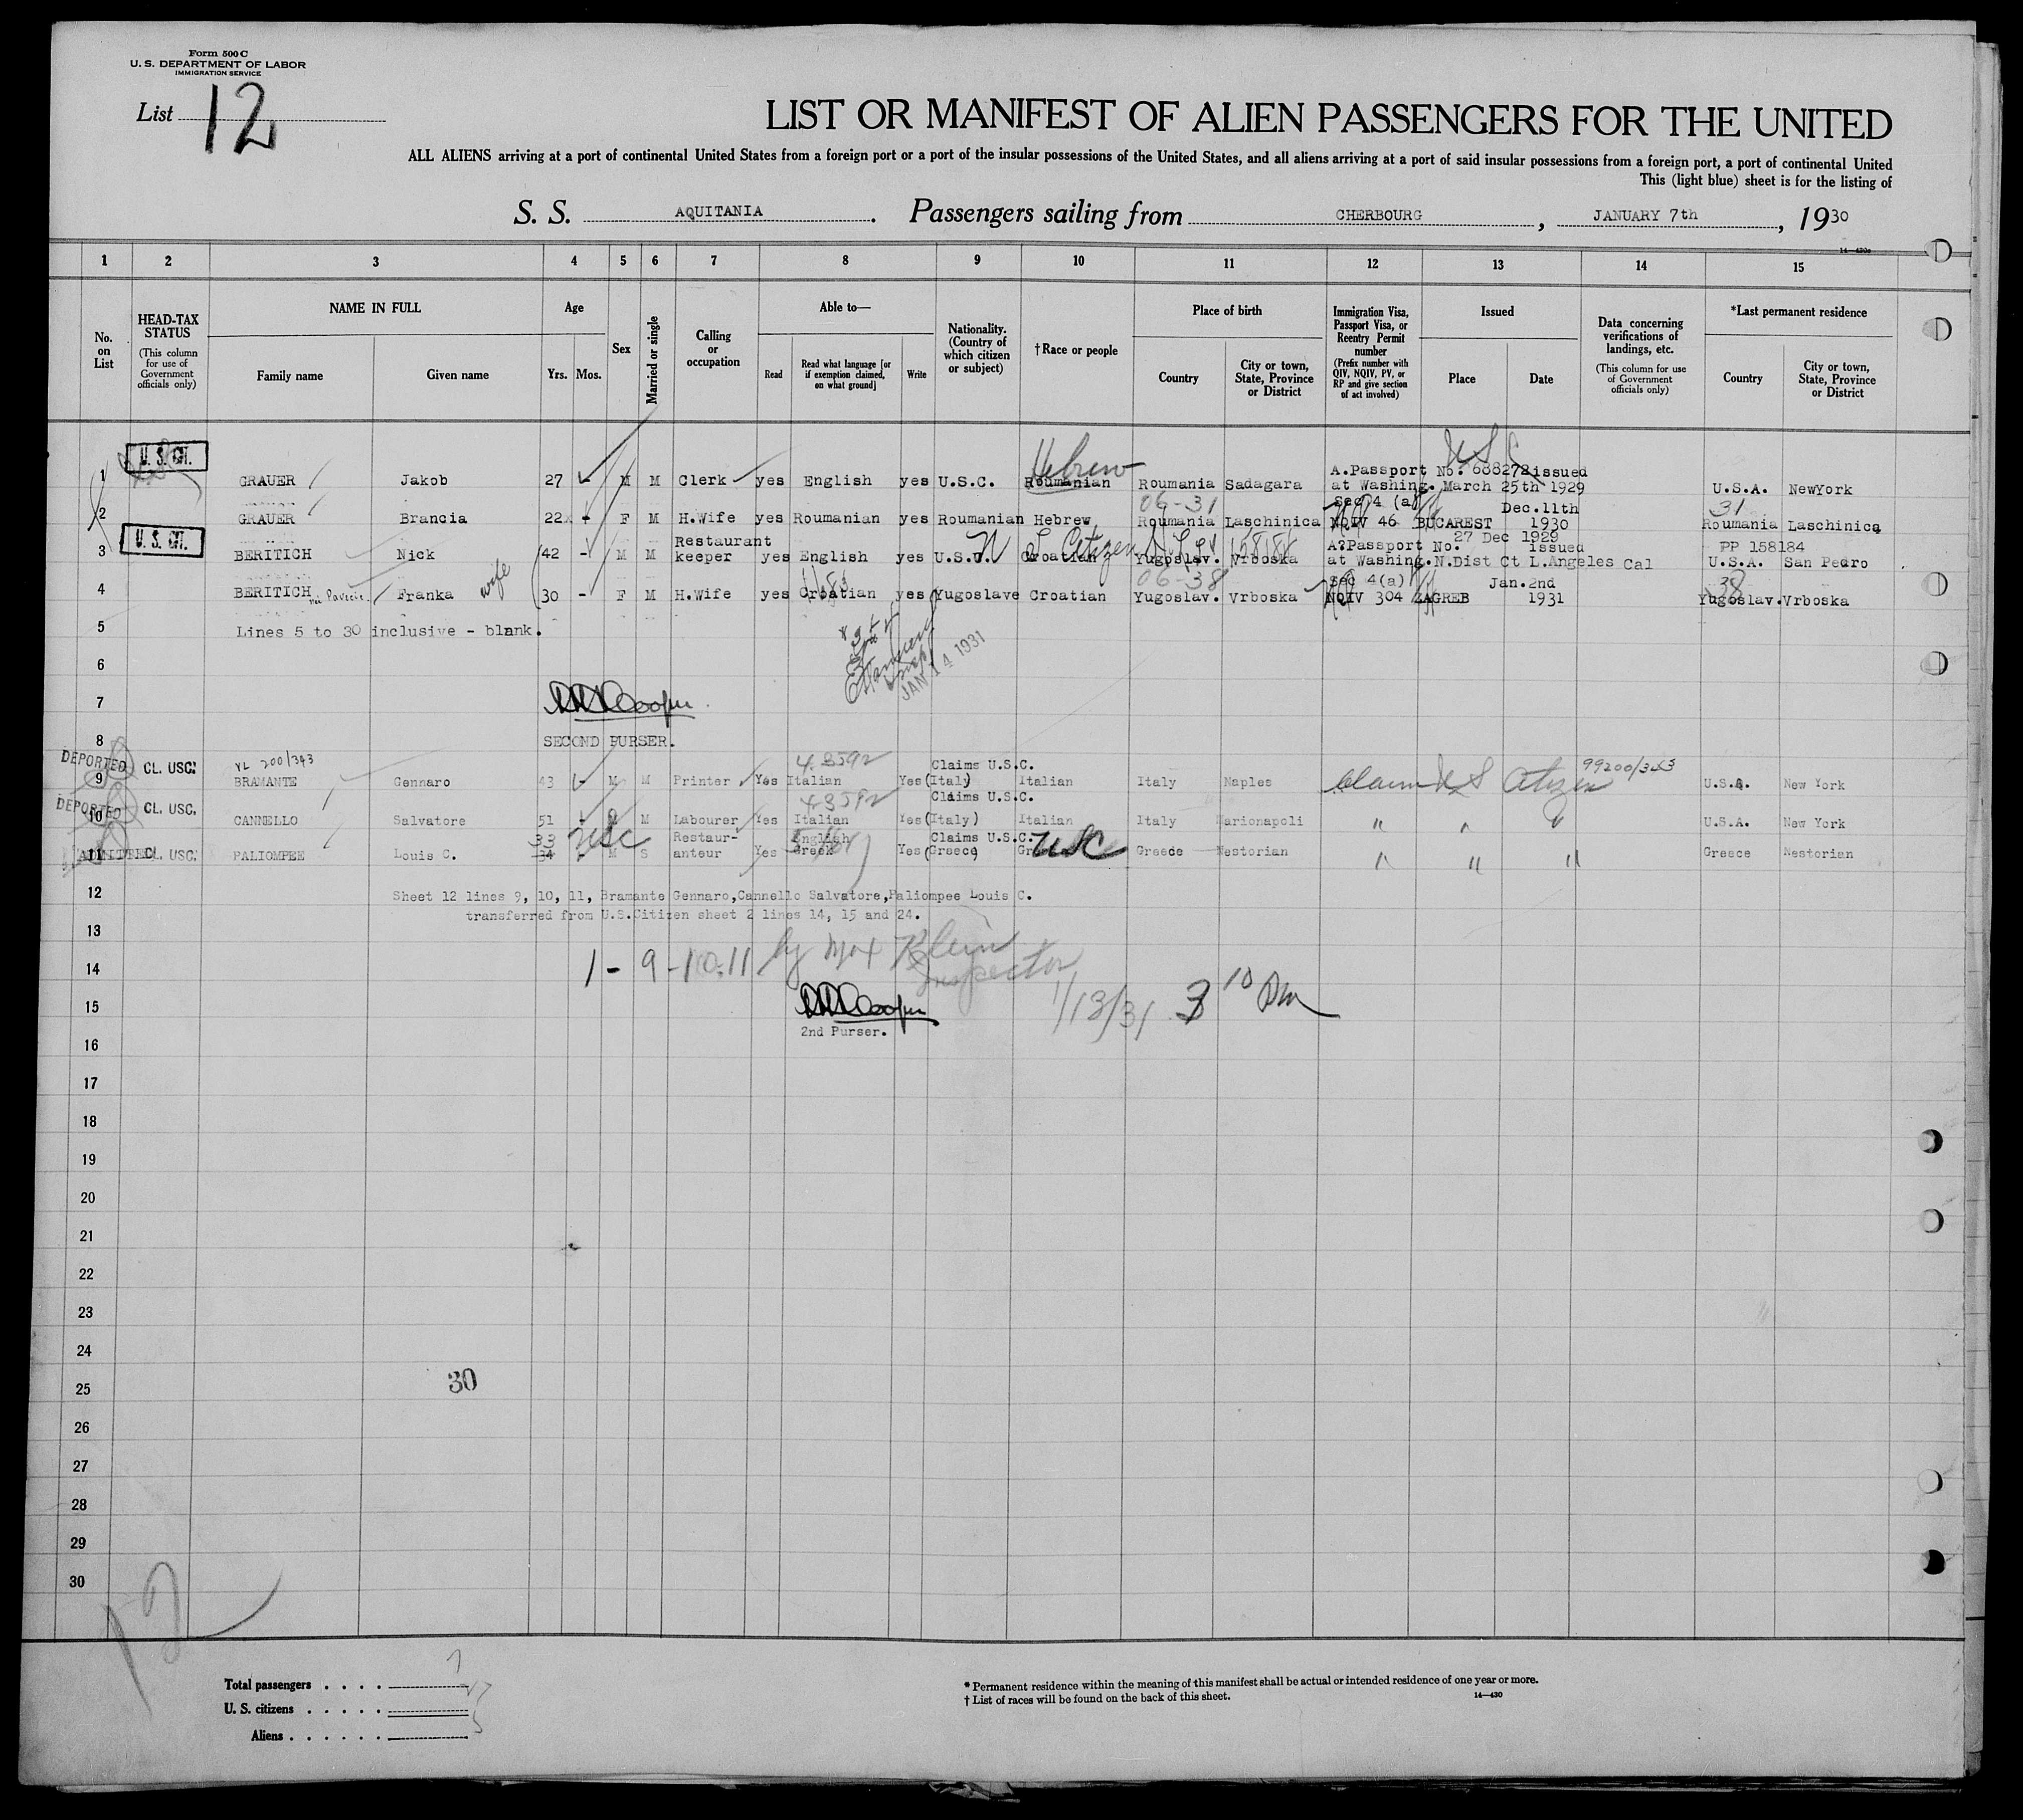 Form 500 C
U. S. DEPARTMENT OF LABOR
IMMIGRATION SERVICE
List 12
LIST OR MANIFEST OF ALIEN PASSENGERS FOR THE UNITED
ALL ALIENS arriving at a port of continental United States from a foreign port or a port of the insular possessions of the United States, and all aliens arriving at a port of said insular possessions from a foreign port, a port of continental United
This (light blue) sheet is for the listing of
S. S. AQUITANIA. Passengers sailing from CHERBOURG, JANUARY 7th, 1930
1 2 3 4 5 6 7 8 9 10 11 12 13 14 15
No. on List
HEAD-TAX STATUS (This column for use of Government officials only)
NAME IN FULL
Family name Given name
Age
Yrs. Mos.
Sex
Married or single
Calling or occupation
Able to—
Read
Read what language [or if exemption claimed, on what ground]
Write
Nationality. (Country of which citizen or subject)
†Race or people
Place of birth
Country
City or town, State, Province or District
Immigration Visa, Passport Visa, or Reentry Permit number (Prefix number with QIV, NQIV, PV, or RP and give section of act involved)
Issued
Place Date
Data concerning verifications of landings, etc. (This column for use of Government officials only)
*Last permanent residence
Country
City or town, State, Province or District
U. S. CIT.
Hebrew
U S C
A.Passport No. 688272 issued
1 GRAUER Jakob 27 - M M Clerk yes English yes U.S.C. Roumanian Roumania Sadagara at Washing. March 25th 1929 U.S.A. NewYork
06-31 Sec 4 (a) Dec.11th 31
2 GRAUER Brancia 22 - F M H.Wife yes Roumanian yes Roumanian Hebrew Roumania Laschinica NQIV 46 BUCAREST 1930 Roumania Laschinica
U. S. CIT.
Restaurant 27 Dec 1929
A?Passport No. issued PP 158184
3 BERITICH Nick 42 - M M keeper yes English yes U.S.C. Croatian Yugoslav. Vrboska at Washing.N.Dist Ct L.Angeles Cal U.S.A. San Pedro
wife 06-38 Sec 4(a) Jan.2nd 38
4 BERITICH Franka 30 - F M H.Wife yes Croatian yes Yugoslave Croatian Yugoslav. Vrboska NQIV 304 ZAGREB 1931 Yugoslav. Vrboska
5 Lines 5 to 30 inclusive - blank.
6
JAN 14 1931
7 Cooper
8 SECOND PURSER.
DEPORTED CL. USC. 200/343 43592 Claims U.S.C. 99200/343
9 BRAMANTE Gennaro 43 - M M Printer Yes Italian Yes (Italy) Italian Italy Naples Claim U S Citizen U.S.A. New York
DEPORTED CL. USC. 43592 Claims U.S.C.
10 CANNELLO Salvatore 51 - M M Labourer Yes Italian Yes (Italy) Italian Italy Marionapoli " " " U.S.A. New York
33 USC Restaur- English Claims U.S.C. USC
11 ADMITTED CL. USC. PALIOMPEE Louis C. 34 M S anteur Yes Greek Yes (Greece) Greece Nestorian " " " Greece Nestorian
12 Sheet 12 lines 9, 10, 11, Bramante Gennaro,Cannello Salvatore,Paliompee Louis C.
transferred from U.S.Citizen sheet 2 lines 14, 15 and 24.
13
14 1 - 9 - 10.11 by Max Klein
Inspector
15 Cooper 1/13/31 3 10 Pm
2nd Purser.
16
17
18
19
20
21
22
23
24
25 30
26
27
28
29
30
12
Total passengers . . . . 7
U. S. citizens . . . . .
Aliens . . . . . . 5
* Permanent residence within the meaning of this manifest shall be actual or intended residence of one year or more.
† List of races will be found on the back of this sheet. 14—430